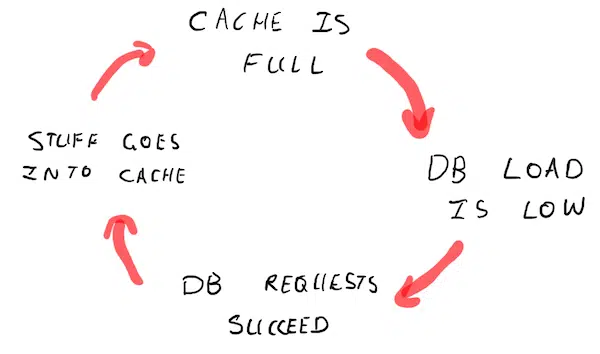 CACHE IS
FULL
DB LOAD
IS LOW
DB REQUESTS
SUCCEED
STUFF GOES
INTO CACHE